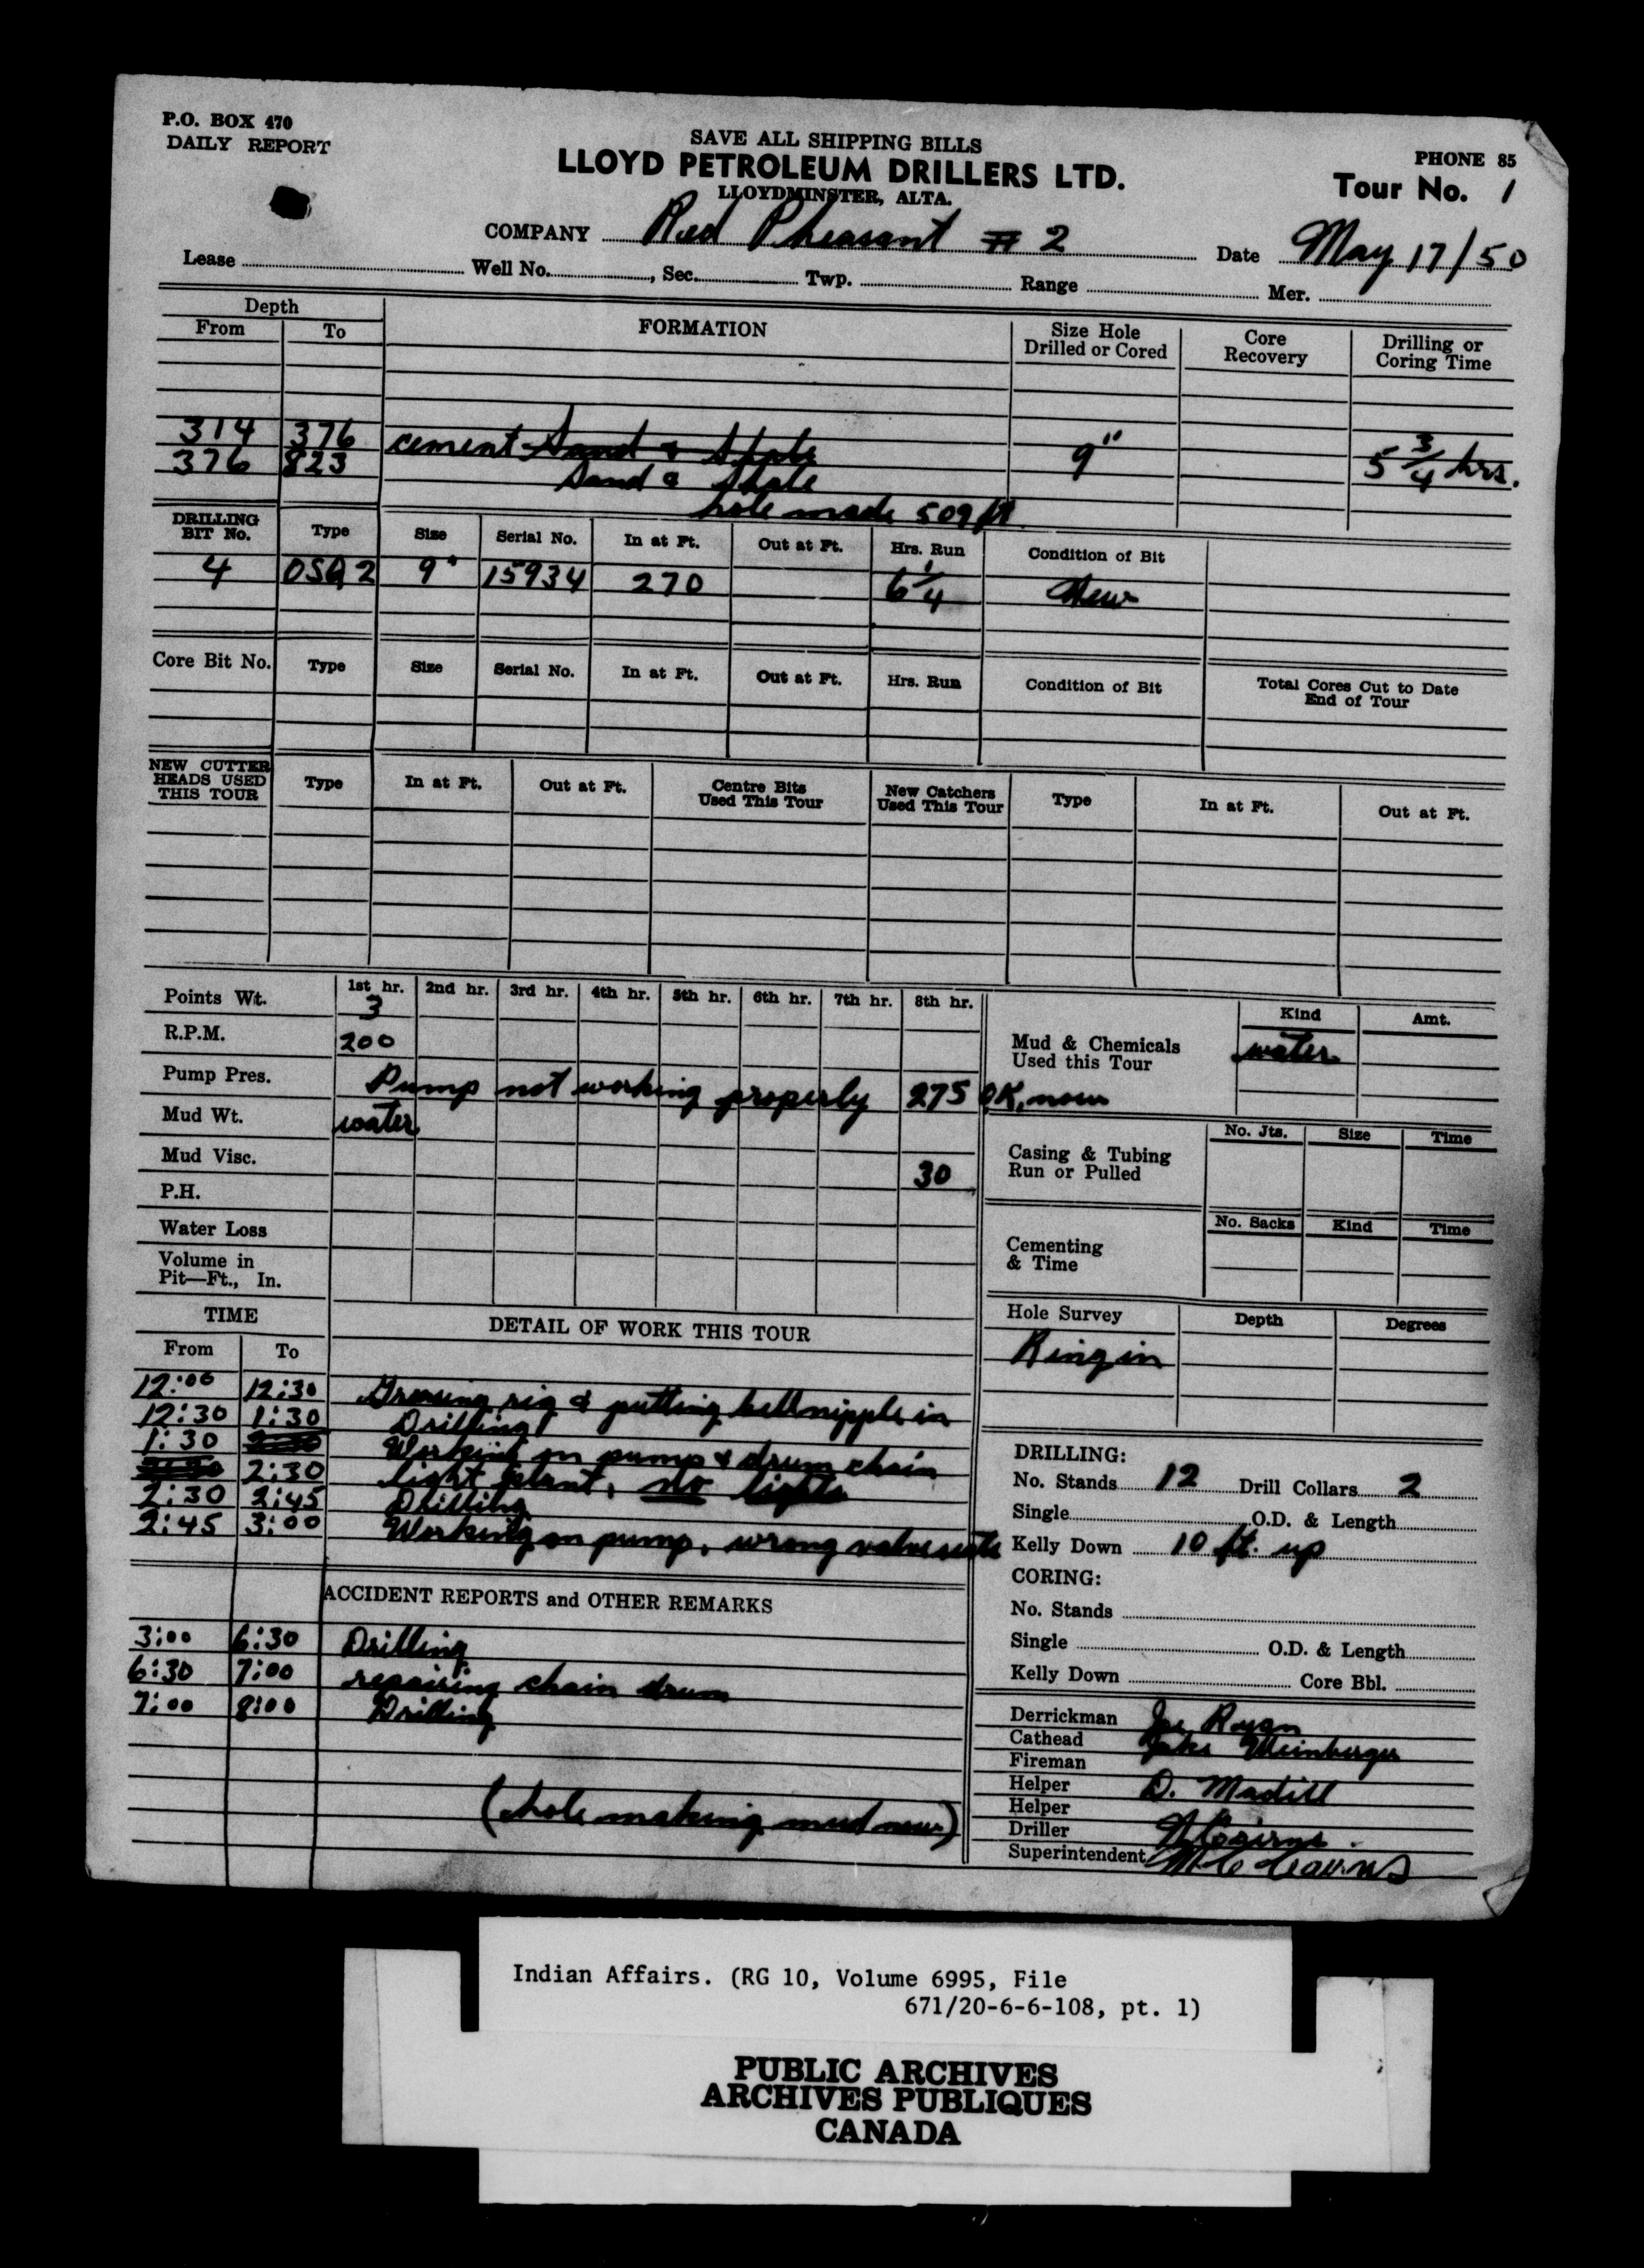 P.O. BOX 470
DAILY REPORT
SAVE ALL SHIPPING BILLS
LLOYD PETROLEUM DRILLERS LTD.
LLOYDMINSTER, ALTA.
PHONE 85
Tour No. 1
COMPANY Red Pheasant # 2 Date May 17/50
Lease Well No. , Sec. Twp. Range Mer.
Depth
From To FORMATION Size Hole Drilled or Cored Core Recovery Drilling or Coring Time
314 376 cement Sand & Shale 9" 5 3/4 hrs.
376 823 Sand & Shale
hole made 509 ft
DRILLING BIT No. Type Size Serial No. In at Ft. Out at Ft. Hrs. Run Condition of Bit
4 OSQ2 9" 15934 270 6 1/4 New
Core Bit No. Type Size Serial No. In at Ft. Out at Ft. Hrs. Run Condition of Bit Total Cores Cut to Date End of Tour
NEW CUTTER HEADS USED THIS TOUR Type In at Ft. Out at Ft. Centre Bits Used This Tour New Catchers Used This Tour Type In at Ft. Out at Ft.
1st hr. 2nd hr. 3rd hr. 4th hr. 5th hr. 6th hr. 7th hr. 8th hr.
Points Wt. 3
R.P.M. 200
Pump Pres. Pump not working properly 275 O.K. now
Mud Wt. water
Mud Visc. 30
P.H.
Water Loss
Volume in Pit—Ft., In.
Mud & Chemicals Used this Tour Kind Amt.
water
Casing & Tubing Run or Pulled No. Jts. Size Time
Cementing & Time No. Sacks Kind Time
Hole Survey Depth Degrees
Ring in
TIME
From To DETAIL OF WORK THIS TOUR
12:00 12:30 Greasing rig & putting bell nipple in
12:30 1:30 Drilling
1:30 Working on pump & drum chain
2:30 light plant, no lights
2:30 2:45 Drilling
2:45 3:00 Working on pump, wrong valve seats
ACCIDENT REPORTS and OTHER REMARKS
3:00 6:30 Drilling
6:30 7:00 repairing chain drum
7:00 8:00 Drilling
(hole making mud now)
DRILLING:
No. Stands 12 Drill Collars 2
Single O.D. & Length
Kelly Down 10 ft. up
CORING:
No. Stands
Single O.D. & Length
Kelly Down Core Bbl.
Derrickman Joe Ryan
Cathead Jake Weinberger
Fireman
Helper D. Madill
Helper
Driller Cairns
Superintendent
Indian Affairs. (RG 10, Volume 6995, File
671/20-6-6-108, pt. 1)
PUBLIC ARCHIVES
ARCHIVES PUBLIQUES
CANADA